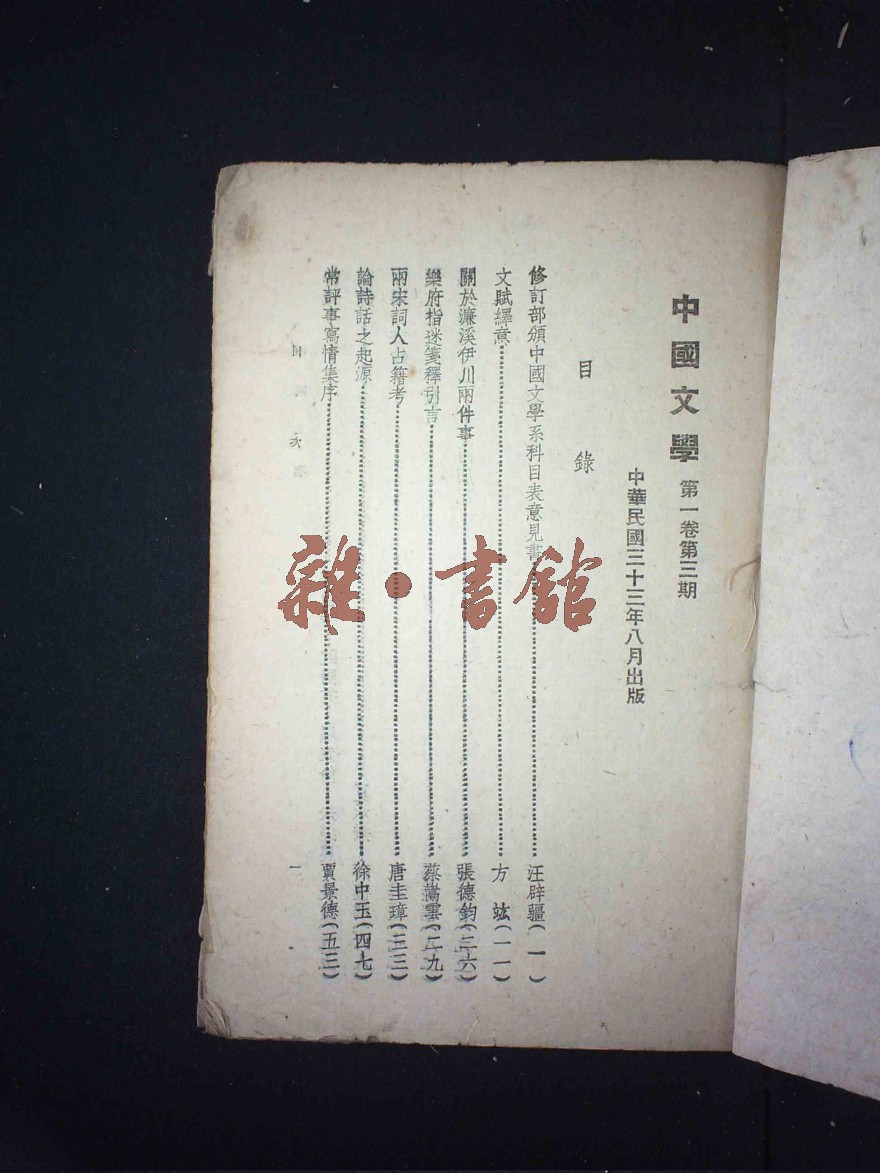 中國文學 第一卷第三期
中華民國三十三年八月出版
目錄
修訂部頒中國文學系科目表意見書……汪辟疆(一)
文賦繹意……方竑(一一)
關於濂溪伊川兩件事……張德鈞(三六)
樂府指迷箋釋引言……蔡嵩雲(二九)
兩宋詞人占籍考……唐圭璋(三三)
論詩話之起源……徐中玉(四七)
常評事寫情集序……賈景德(五三)
目次
一
雜·書館